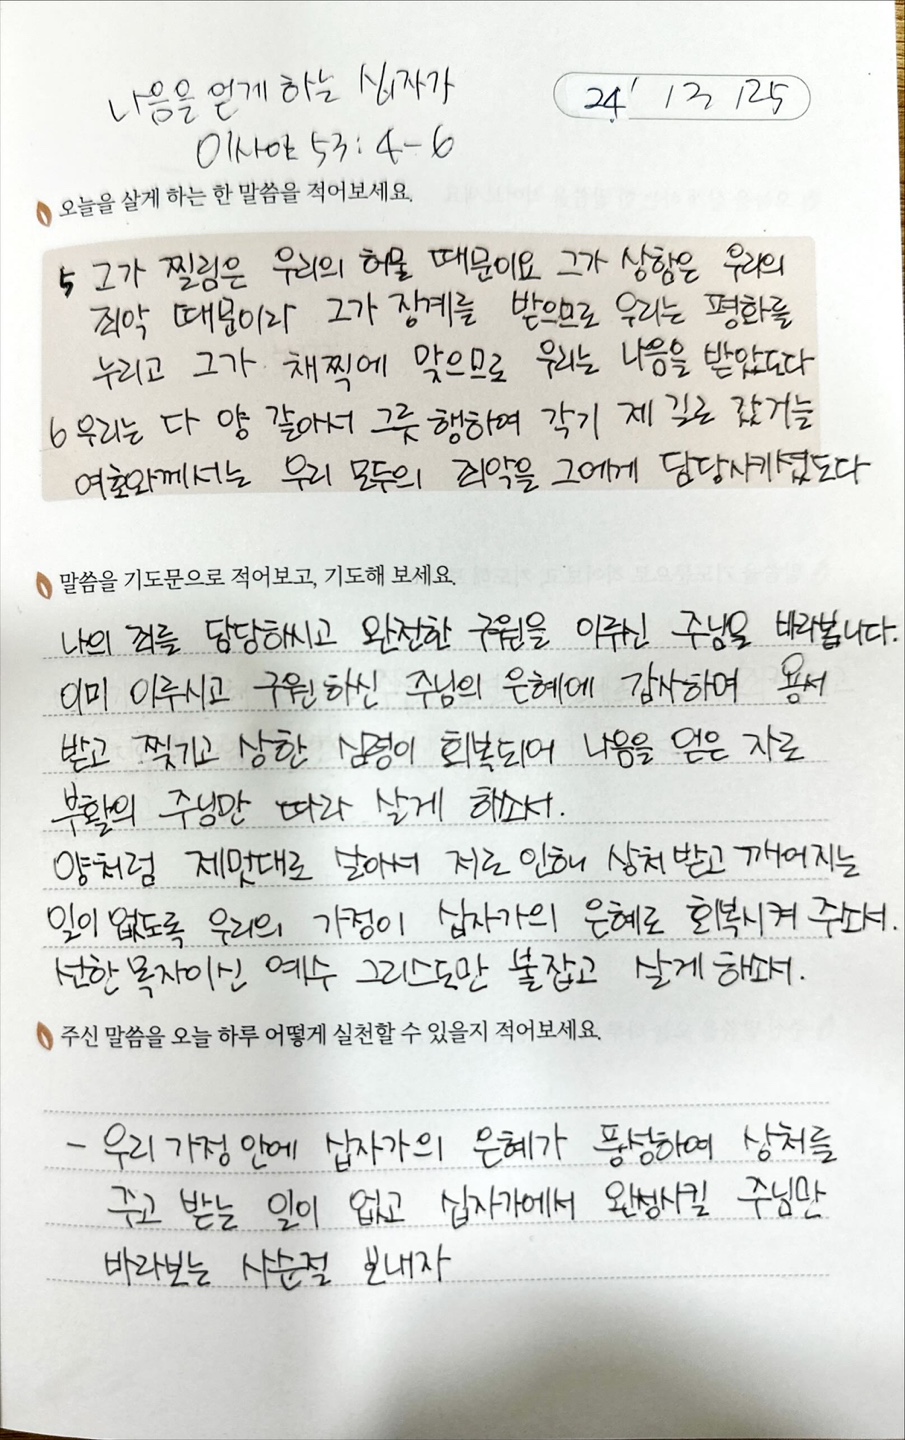 나음을 얻게 하는 십자가
24' 13 125
이사야 53:4-6
오늘을 살게 하는 한 말씀을 적어보세요.
5 그가 찔림은 우리의 허물 때문이요 그가 상함은 우리의
죄악 때문이라 그가 징계를 받으므로 우리는 평화를
누리고 그가 채찍에 맞으므로 우리는 나음을 받았도다
6 우리는 다 양 같아서 그릇 행하여 각기 제 길로 갔거늘
여호와께서는 우리 모두의 죄악을 그에게 담당시키셨도다
말씀을 기도문으로 적어보고, 기도해 보세요.
나의 죄를 담당하시고 완전한 구원을 이루신 주님을 바라봅니다.
이미 이루시고 구원하신 주님의 은혜에 감사하며 용서
받고 찢기고 상한 심령이 회복되어 나음을 얻은 자로
부활의 주님만 따라 살게 하소서.
양처럼 제멋대로 살아서 저로 인해 상처받고 깨어지는
일이 없도록 우리의 가정이 십자가의 은혜로 회복시켜 주소서.
선한 목자이신 예수 그리스도만 붙잡고 살게 하소서.
주신 말씀을 오늘 하루 어떻게 실천할 수 있을지 적어보세요.
- 우리 가정 안에 십자가의 은혜가 풍성하여 상처를
주고 받는 일이 없고 십자가에서 완성시킬 주님만
바라보는 사순절 보내자